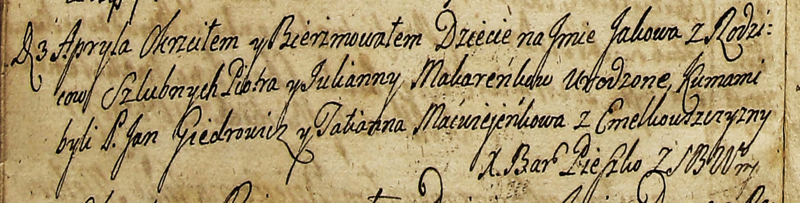 D 3 Apryla Okrzciłem y Bierzmowałem Dziecie na Jmie Jakowa z Rodzi:
cow Szlubnych Piotra y Julianny Makareńkow urodzone, Kumami
byli P. Jan Giedrowicz y Tatianna Maćwiejeńkowa z Emelkowdzczyzny
X. Bar Pieszko Z S B W